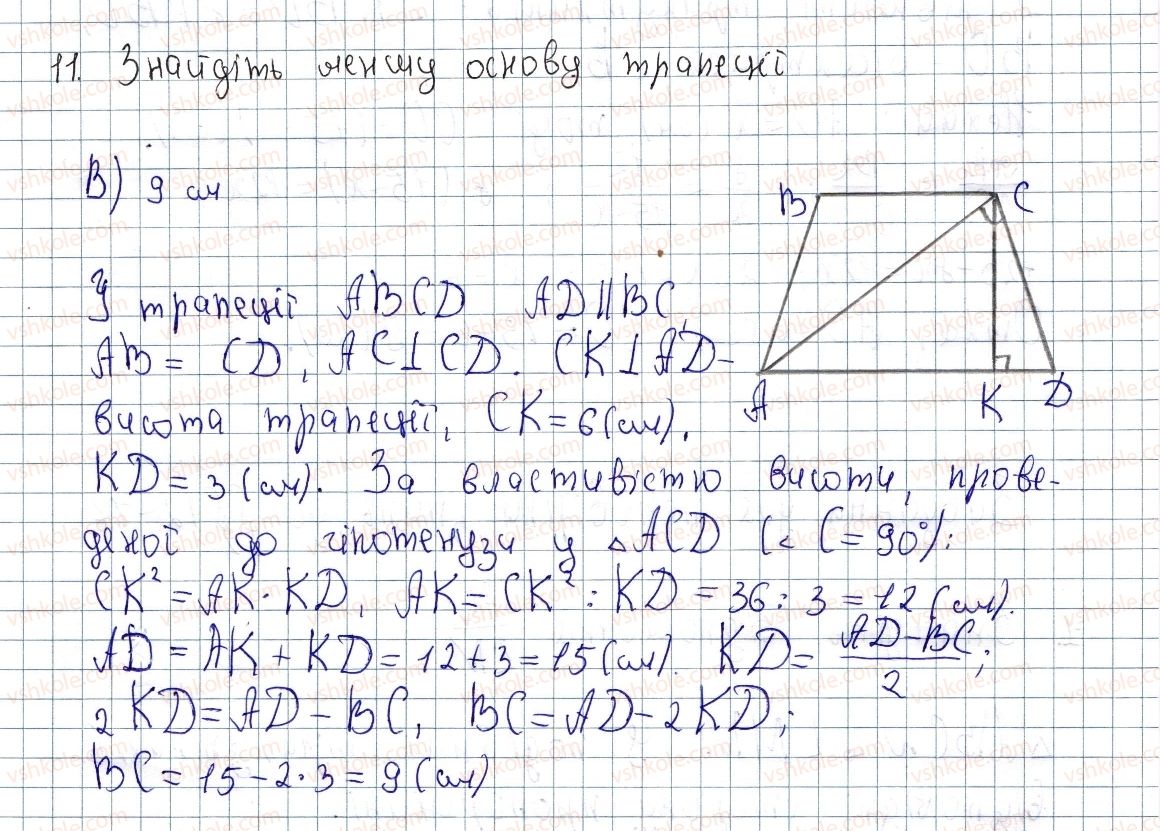 11. Знайдіть меншу основу трапеції
В) 9 см
B C
A K D
У трапеції ABCD AD||BC,
AB = CD, AC⊥CD. CK⊥AD –
висота трапеції, CK = 6 (см).
KD = 3 (см). За властивістю висоти, прове-
деної до гіпотенузи у △ACD (∠C = 90°):
CK² = AK · KD, AK = CK² : KD = 36 : 3 = 12 (см).
AD = AK + KD = 12 + 3 = 15 (см). KD = (AD – BC)/2;
2KD = AD – BC, BC = AD – 2KD;
BC = 15 – 2 · 3 = 9 (см)
vshkole.com